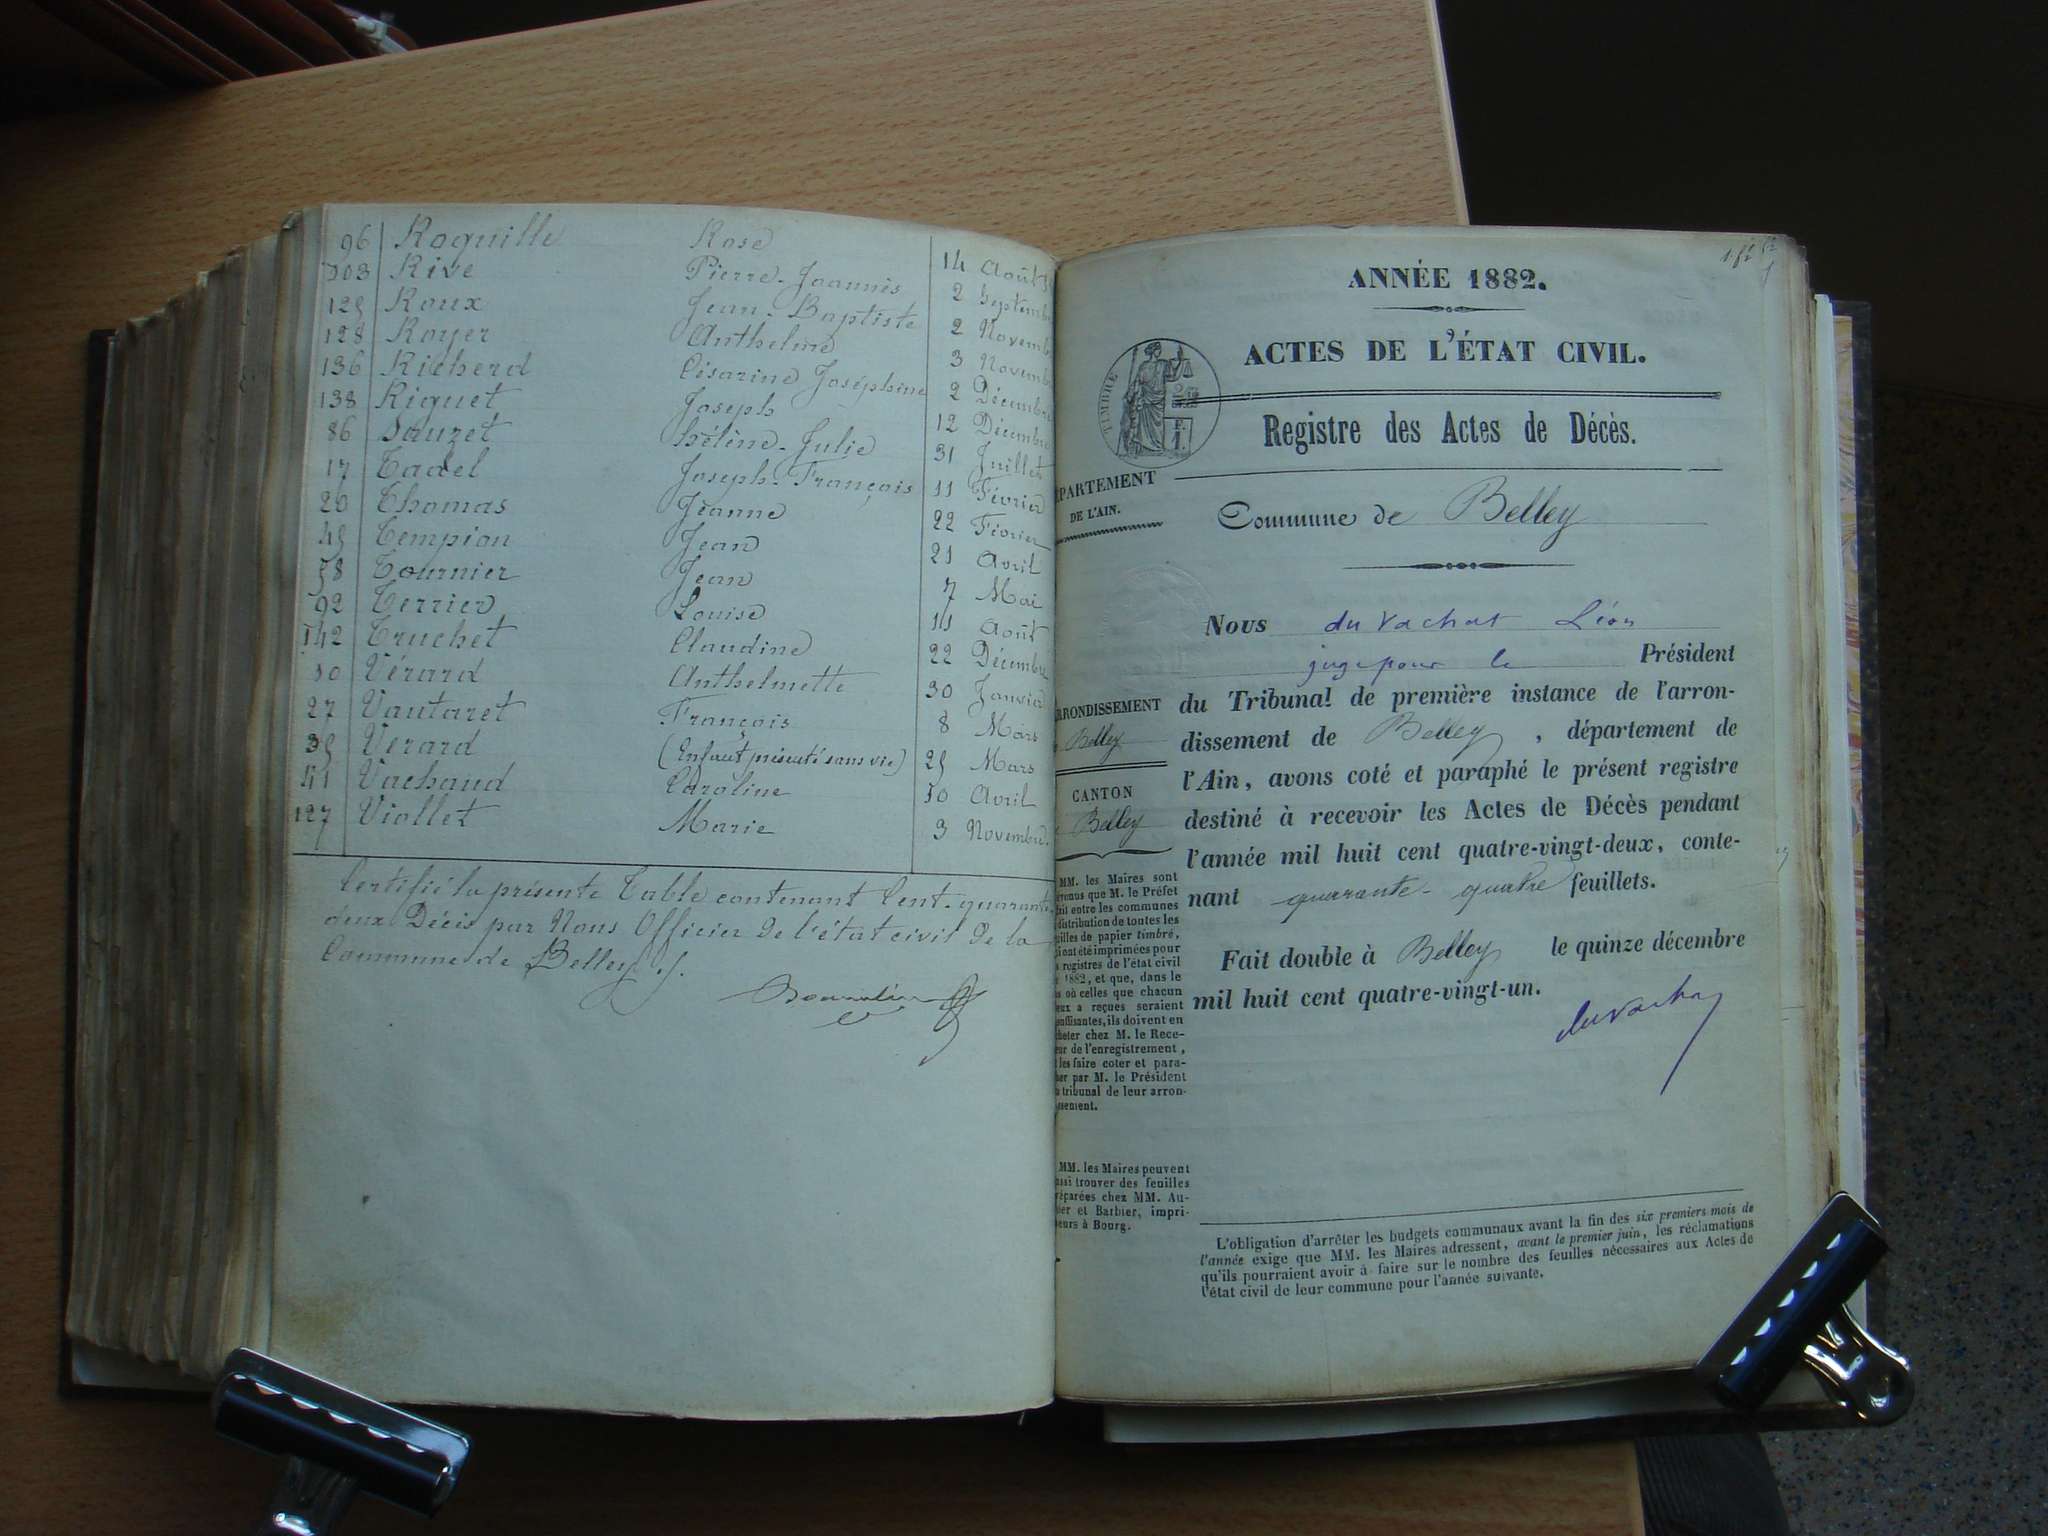 96 Roguille Rose 14 Août
103 Rive Pierre-Joannès 2 Septembre
125 Roux Jean-Baptiste 2 Novemb
128 Royer Anthelme 3 Novemb
136 Richerd Césarine Joséphine 2 Décembre
138 Riguet Joseph 12 Décembre
86 Sauzet Hélène-Julie 31 Juillet
17 Tadel Joseph-François 11 Février
20 Thomas Jeanne 22 Février
45 Tempion Jean 21 Avril
58 Tournier Jean 7 Mai
92 Terrier Louise 14 Août
142 Truchet Claudine 22 Décembre
10 Vérard Anthelmette 30 Janvier
27 Vautaret François 8 Mars
35 Verard (Enfant présenté sans vie) 25 Mars
41 Vachaud Caroline 10 Avril
127 Viollet Marie 3 Novembre
Certifié la présente Table contenant Cent-quarante
deux Décès par Nous Officier de l'état civil de la
Commune de Belley
ANNÉE 1882.
ACTES DE L'ÉTAT CIVIL.
TIMBRE
Registre des Actes de Décès.
PARTEMENT
DE L'AIN.
Commune de Belley
Nous du Vachat Léon
juge pour le Président
du Tribunal de première instance de l'arron-
dissement de Belley, département de
l'Ain, avons coté et paraphé le présent registre
destiné à recevoir les Actes de Décès pendant
l'année mil huit cent quatre-vingt-deux, conte-
nant quarante-quatre feuillets.
Fait double à Belley le quinze décembre
mil huit cent quatre-vingt-un.
duvachat
RRONDISSEMENT
Belley
CANTON
Belley
MM. les Maires sont
venus que M. le Préfet
ait entre les communes
distribution de toutes les
uilles de papier timbré,
i ont été imprimées pour
s registres de l'état civil
e 1882, et que, dans le
s où celles que chacun
eux a reçues seraient
suffisantes, ils doivent en
cheter chez M. le Rece-
eur de l'enregistrement,
t les faire coter et para-
her par M. le Président
u tribunal de leur arron-
ssement.
MM. les Maires peuvent
ssi trouver des feuilles
réparées chez MM. Au-
ier et Barbier, impri-
eurs à Bourg.
L'obligation d'arrêter les budgets communaux avant la fin des six premiers mois de
l'année exige que MM. les Maires adressent, avant le premier juin, les réclamations
qu'ils pourraient avoir à faire sur le nombre des feuilles nécessaires aux Actes de
l'état civil de leur commune pour l'année suivante.